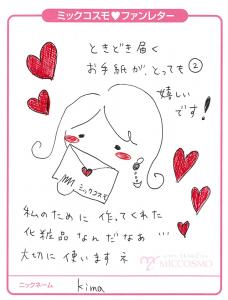 ミックコスモ♥ファンレター
ときどき届く
お手紙が、とっても②
嬉しい
です!
ミックコスモ
私のために 作ってくれた
化粧品なんだなぁ…
大切に 使います
MICCOSMO
ニックネーム kima